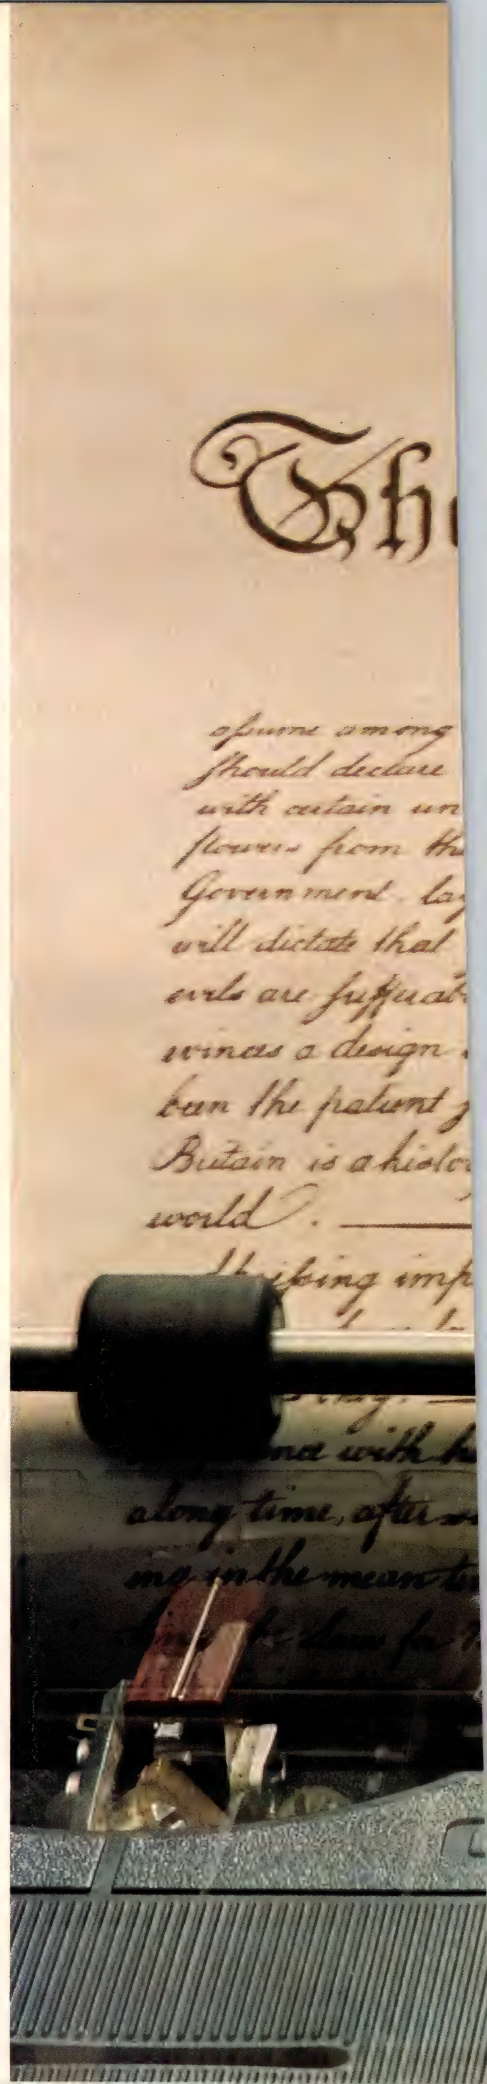 The
assume among
should declare
with certain un
powers from the
Government, lay
will dictate that
evils are sufferab
evinces a design
been the patient
Britain is a histor
world.
imp
nce with h
along time, after
ing in the mean tim